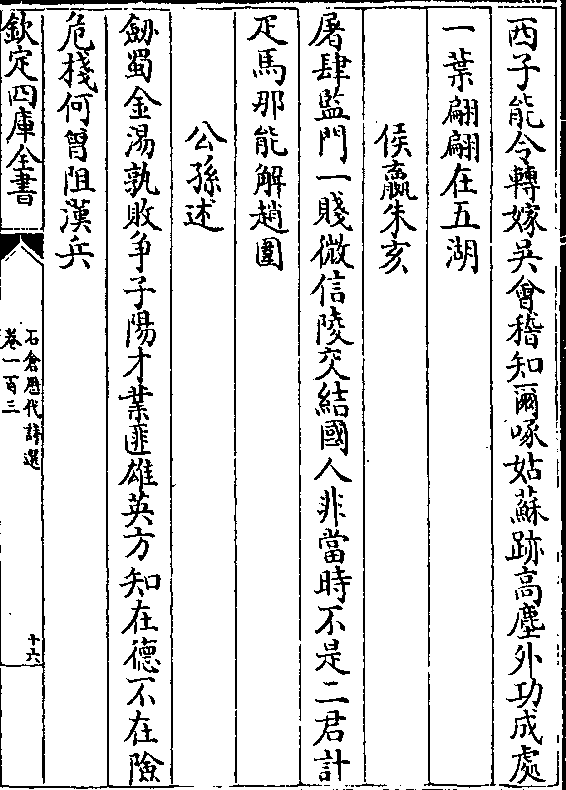 西子能令轉嫁吳會稽知爾啄姑蘇跡高塵外功成處
一葉翩翩在五湖
侯嬴朱亥
屠肆監門一賤微信陵交結國人非當時不是二君計
疋馬那能解趙圍
公孫述
劒蜀金湯孰敗爭子陽才業匪雄英方知在德不在險
危棧何曾阻漢兵
欽定四庫全書
石倉歷代詩選
卷一百三
十六